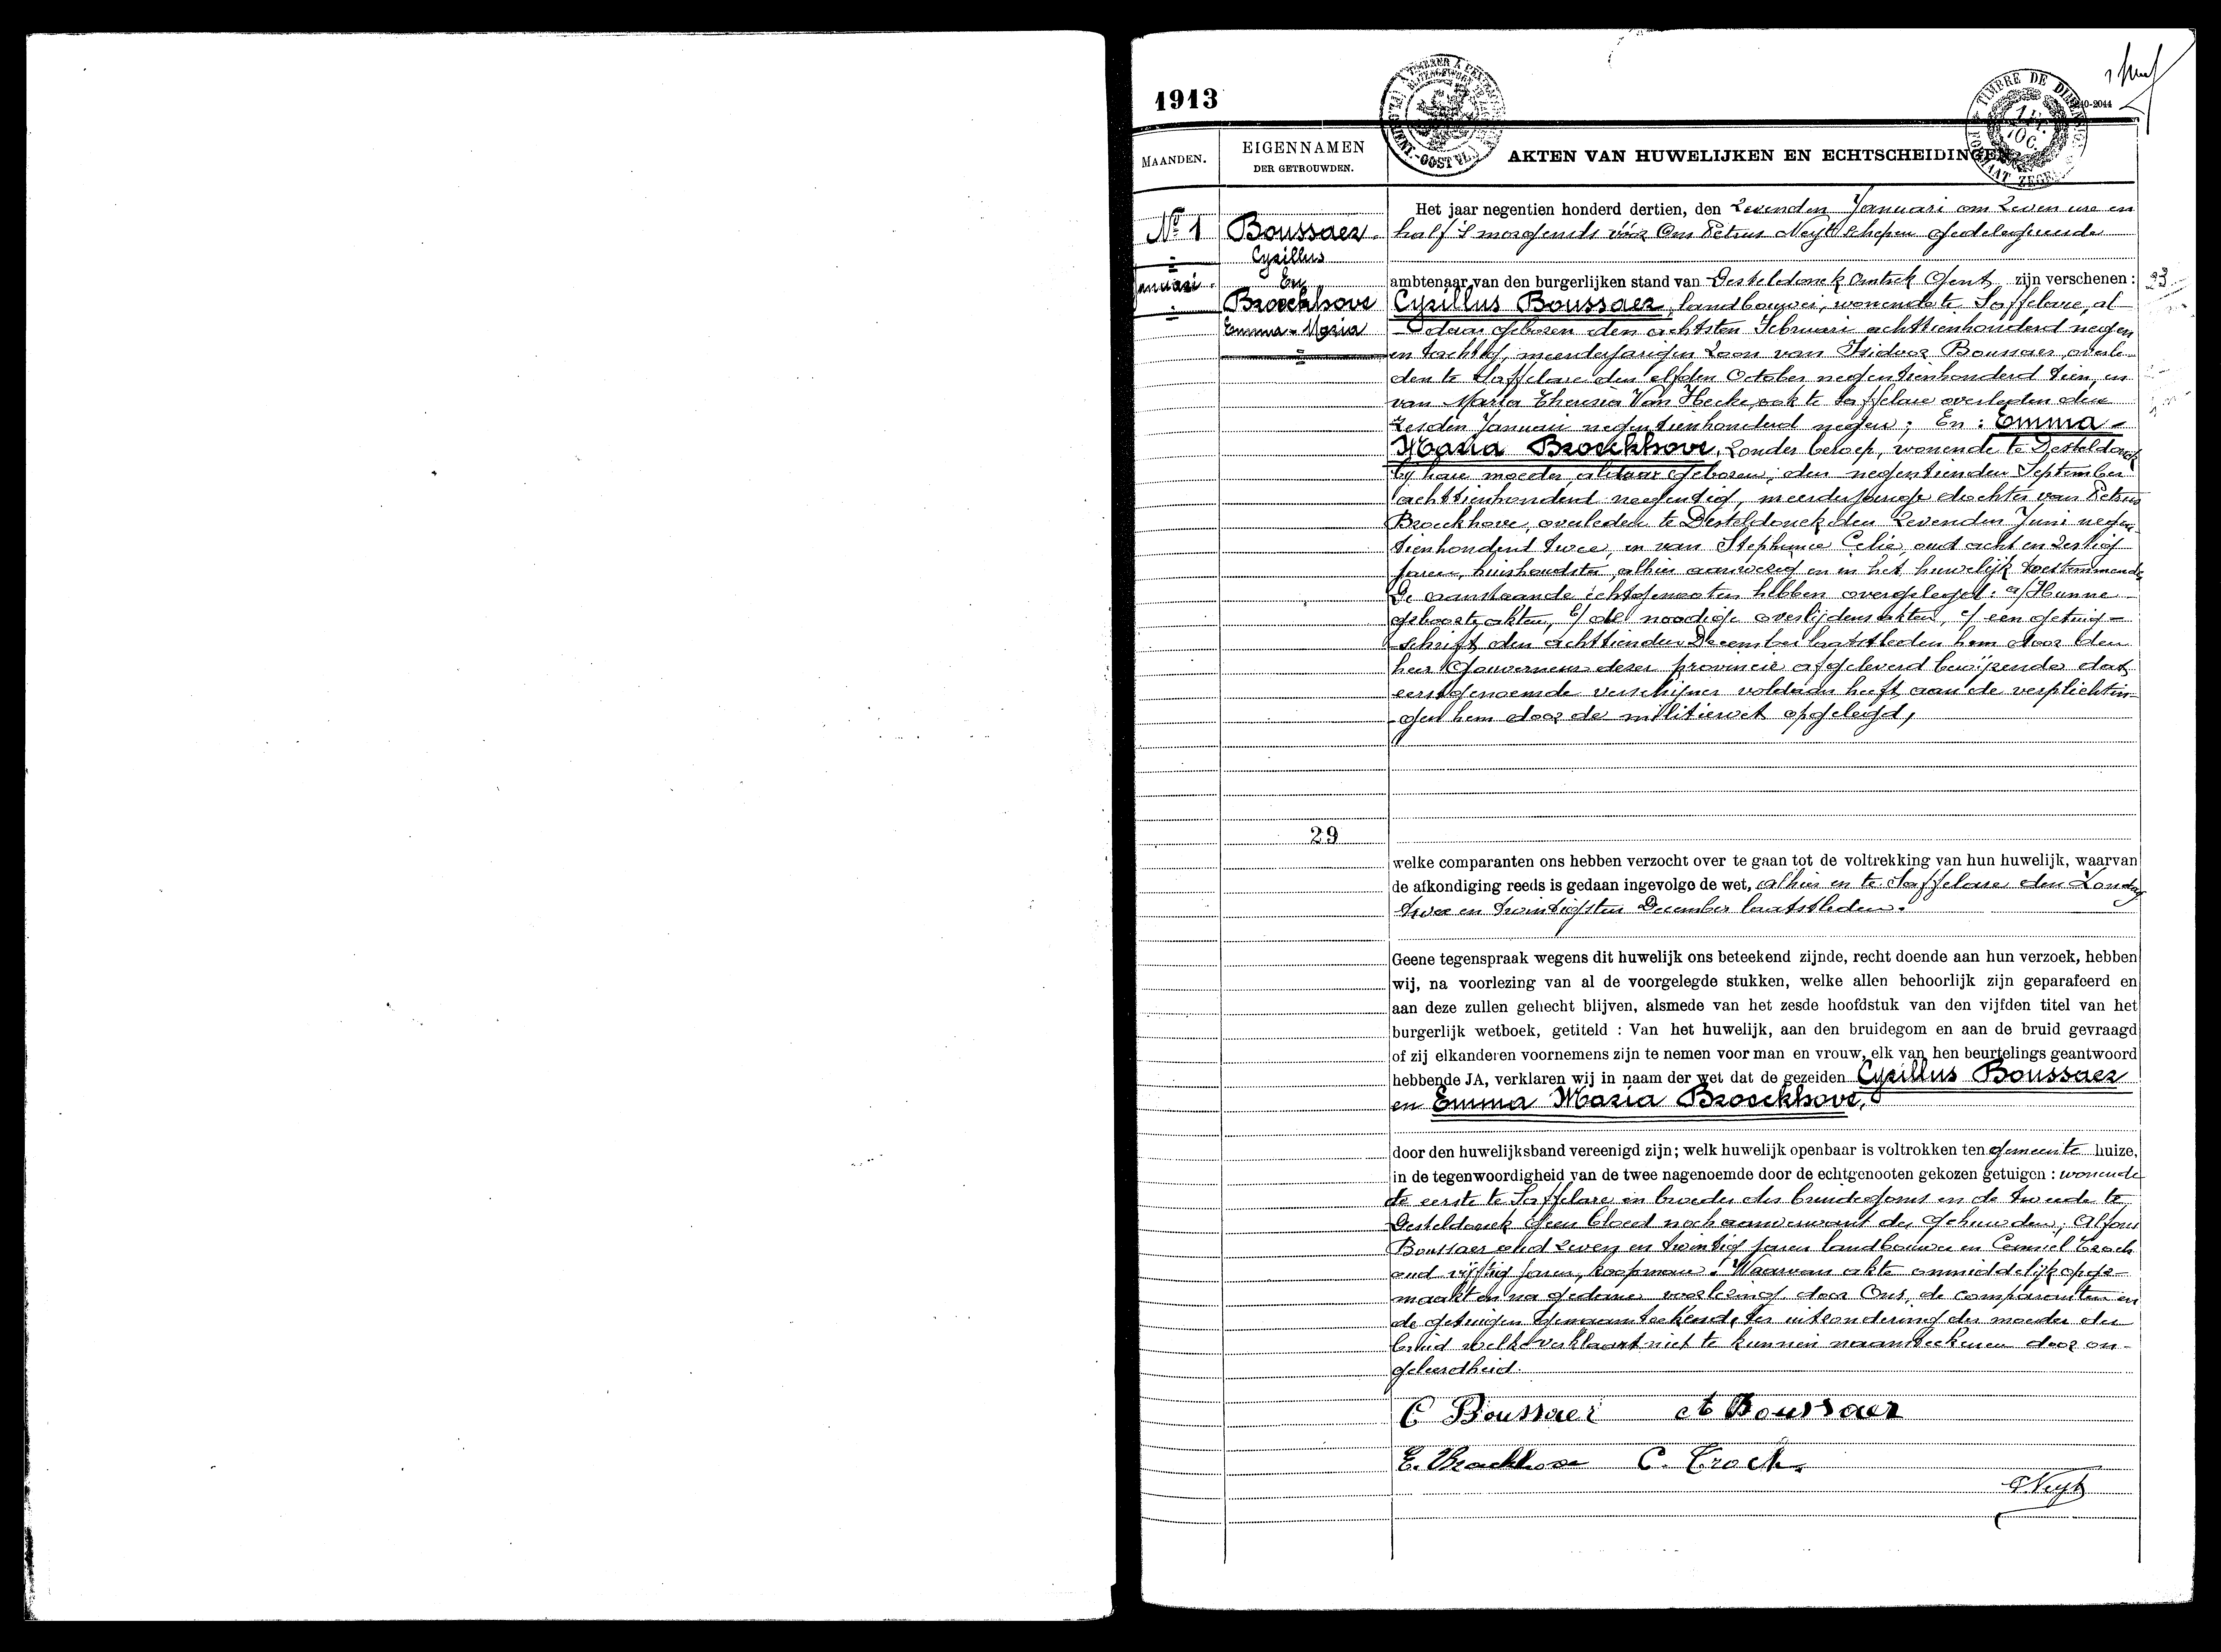 1913
MAANDEN.
EIGENNAMEN
DER GETROUWDEN.
AKTEN VAN HUWELIJKEN EN ECHTSCHEIDINGEN
TIMBRE DE DIMENSION
1 FR. 10 C.
No 1
Januari
Boussaer
Cyrillus
En
Broeckhove
Emma-Maria
29
Het jaar negentien honderd dertien, den Zevenden Januari om Zeven ure en
half 's morgends vóór Ons Petrus Neyt Schepen gedelegueerde
ambtenaar van den burgerlijken stand van Desteldonck Omtrek Gent, zijn verschenen :
Cyrillus Boussaer, landbouwer, wonende te Saffelare, al-
daar geboren den achtsten Februari achttienhonderd negen
en tachtig, meerderjarigen Zoon van Isidoor Boussaer, overle-
den te Saffelare den elfden October negentienhonderd tien, en
van Maria Theresia Van Hecke, ook te Saffelare overleden den
Zesden Januari negentienhonderd negen; En : Emma-
Maria Broeckhove, Zonder beroep, wonende te Desteldonck
bij hare moeder, aldaar geboren, den negentienden September
achttienhonderd negentig, meerderjarige dochter van Petrus
Broeckhove, overleden te Desteldonck den Zevenden Juni negen-
tienhonderd twee, en van Stephanie Celie, oud acht en Zestig
jaren, huishoudster, alhier aanwezig en in het huwelijk toestemmende
De aanstaande echtgenooten hebben overgelegd: a/ Hunne
geboorteakten, b/ de noodige overlijdensakten, c/ een getuig-
schrift den achttienden December laatstleden hem door den
heer Gouverneur dezer provincie afgeleverd bewijzende dat
eerstgenoemde verschijner voldaan heeft aan de verplichtin-
gen hem door de militiewet opgelegd,
welke comparanten ons hebben verzocht over te gaan tot de voltrekking van hun huwelijk, waarvan
de afkondiging reeds is gedaan ingevolge de wet, alhier en te Saffelare den Zondag
twee en twintigsten December laatstleden.
Geene tegenspraak wegens dit huwelijk ons beteekend zijnde, recht doende aan hun verzoek, hebben
wij, na voorlezing van al de voorgelegde stukken, welke allen behoorlijk zijn geparafeerd en
aan deze zullen gehecht blijven, alsmede van het zesde hoofdstuk van den vijfden titel van het
burgerlijk wetboek, getiteld : Van het huwelijk, aan den bruidegom en aan de bruid gevraagd
of zij elkanderen voornemens zijn te nemen voor man en vrouw, elk van hen beurtelings geantwoord
hebbende JA, verklaren wij in naam der wet dat de gezeiden Cyrillus Boussaer
en Emma Maria Broeckhove,
door den huwelijksband vereenigd zijn; welk huwelijk openbaar is voltrokken ten gemeente huize,
in de tegenwoordigheid van de twee nagenoemde door de echtgenooten gekozen getuigen : wonende
de eerste te Saffelare en broeder des bruidegoms en de tweede te
Desteldonck geen bloed noch aanverwant der gehuwden; Alfons
Boussaer oud Zeven en twintig jaren landbouwer en Camiel Crock
oud vijftig jaren, koopman. Waarvan akte onmiddelijk opge-
maakt en na gedane voorlezing door Ons, de comparanten en
de getuigen genaamteekend, ter uitzondering der moeder der
bruid welke verklaart niet te kunnen naamteekenen door on-
geleerdheid.
C Boussaer A Boussaer
E. Broeckhove C. Crock.
P. Neyt